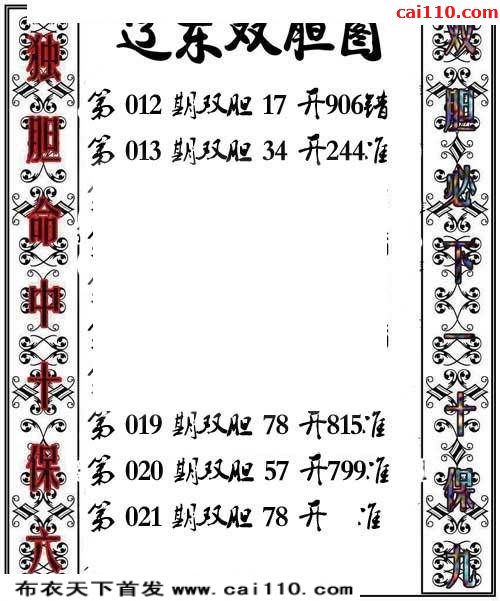 cai110.com
辽东双胆图
独胆命中十保六
双胆必下一十保九
第 012 期双胆 17 开906错
第 013 期双胆 34 开244准
第 019 期双胆 78 开815准
第 020 期双胆 57 开799准
第 021 期双胆 78 开 准
布衣天下首发 www.cai110.com